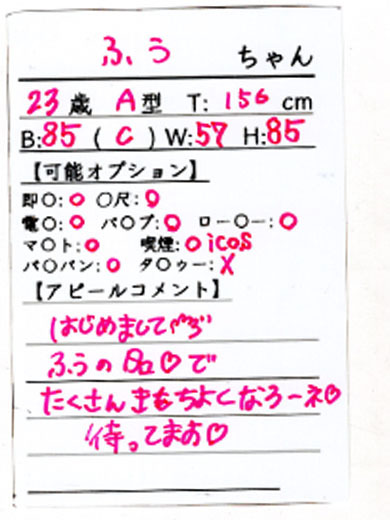 ふう ちゃん
23歳 A型 T: 156 cm
B:85 ( C ) W:57 H:85
【可能オプション】
即〇:○ 〇尺:○
電〇:○ バ〇ブ:○ ロー〇ー:○
マ〇ト:○ 喫煙:○ icos
パ〇パン:○ タ〇ゥー:X
【アピールコメント】
はじめまして
ふうのお口♡で
たくさんきもちよくなろーネ♡
待ってます♡